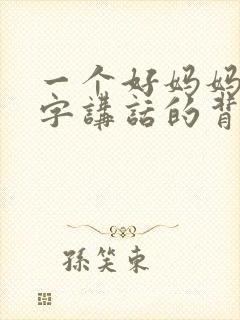 一个好妈妈
字講話的背
孫笑東